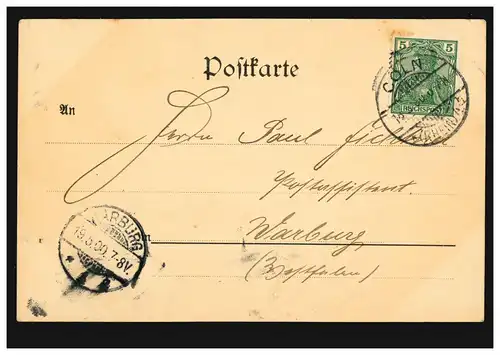 5 5
REICHSPOST
CÖLN
Postkarte
An
Herrn Paul
Postassistent
Warburg
(Westfalen)
WARBURG
19.5.00.7-8V.